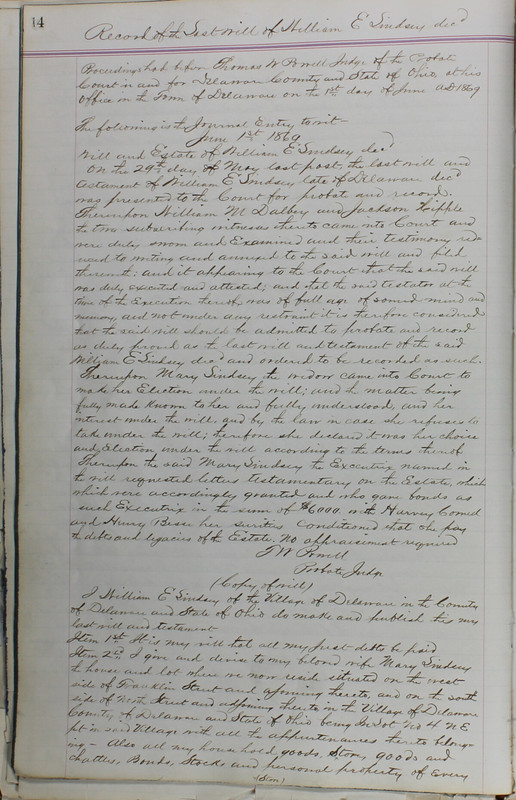 14
Record of the Last Will of William E Lindsey dec'd
Proceedings had before Thomas W Powell Judge of the Probate
Court in and for Delaware County and State of Ohio, at his
Office in the Town of Delaware on the 1st day of June AD 1869
The following is the Journal Entry to wit-
June 1st 1869
Will and Estate of William E Lindsey dec'd
On the 29th day of May last past, the last will and
testament of William E Lindsey late of Delaware dec'd
was presented to the Court for probate and record.
Thereupon William M Dalbey and Jackson Hipple
the two subscribing witnesses thereto came into Court and
were duly sworn and Examined and their testimony red-
uced to writing and annexed to the said will and filed
therewith: and it appearing to the Court that the said will
was duly executed and attested; and that the said testator at the
time of the Execution thereof was of full age of sound mind and
memory, and not under any restraint it is therefore considered
that the said will should be admitted to probate and record
as duly proved as the last will and testament of the said
William E Lindsey dec'd and ordered to be recorded as such.
Thereupon Mary Lindsey the widow came into Court to
make her Election under the will; and the matter being
fully made known to her and fully understood, and her
interest under the will, and by the law in case she refuses to
take under the will; therefore she declared it was her choice
and Election under the will according to the terms thereof
Thereupon the said Mary Lindsey the Executrix named in
the will requested letters testamentary on the Estate, which
which were accordingly granted and who gave bonds as
such Executrix in the sum of $6000. with Harvey
and Henry Besse her sureties Conditioned that she pay
the debts and legacies of the Estate. No appraisement required
T W Powell
Probate Judge
(Copy of will)
I William E Lindsey of the Village of Delaware in the County
of Delaware and State of Ohio do make and publish this my
last will and testament
Item 1st It is my will that all my just debts be paid
Item 2nd I give and devise to my beloved wife Mary Lindsey
the house and lot where we now reside situated on the west
side of Franklin Street and adjoining thereto, and on the south
side of North Street and adjoining thereto in the Village of Delaware
County of Delaware and State of Ohio being In Lot No 4 N E
pt. in said Village with all the appurtenances thereto belong-
ing - Also all my household goods, Store goods and
chattles, Bonds, Stocks and personal property of Every